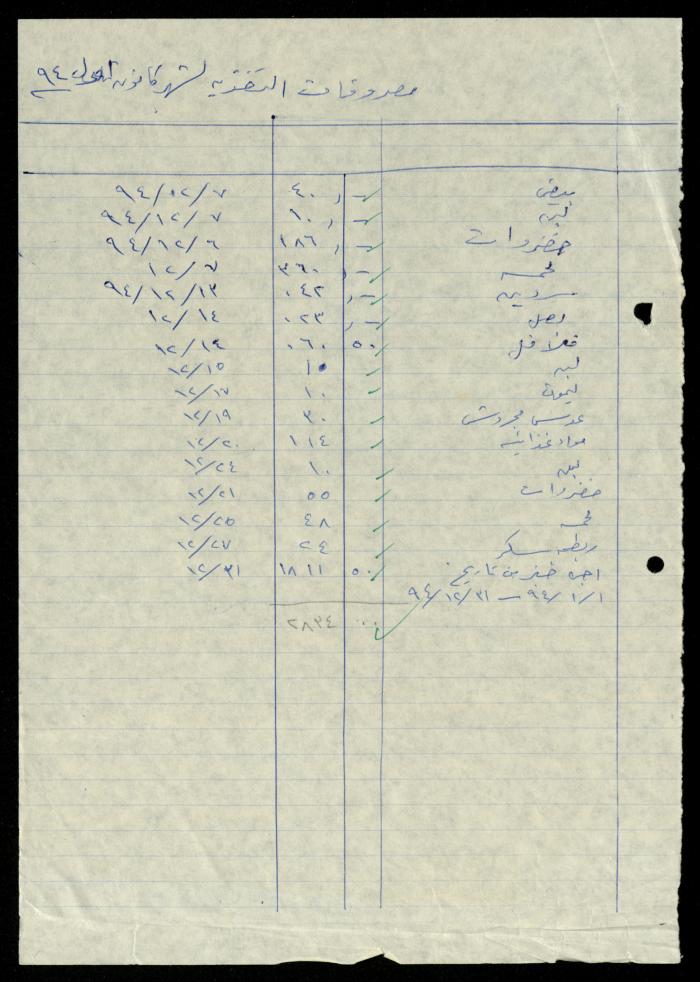 مصروفات التغذيه لشهر كانون اول ٩٤
بيض - ٤٠ ٩٤/١٢/٧
لبن - ١٠ ٩٤/١٢/٧
خضروات - ١٨٦ ٩٤/١٢/٦
- ٣٦٠ ١٢/٧
سردين - ٠٤٢ ٩٤/١٢/١٣
بصل - ٠٢٣ ١٢/١٤
فلافل ٥٠ ٠٦٠ ١٢/١٤
لبن ١٠ ١٢/١٥
ليمون ١٠ ١٢/١٧
عدس مجروش ٣٠ ١٢/١٩
مواد غذائيه ١١٤ ١٢/٢٠
لبن ١٠ ١٢/٢٤
خضروات ٥٥ ١٢/٢١
٤٨ ١٢/٢٥
ربطه سكر ٢٤ ١٢/٢٧
اجره خبز من تاريخ ٥٠ ١٨١١ ١٢/٣١
٩٤/١/١ - ٩٤/١٢/٣١
٠٠ ٢٨٣٤